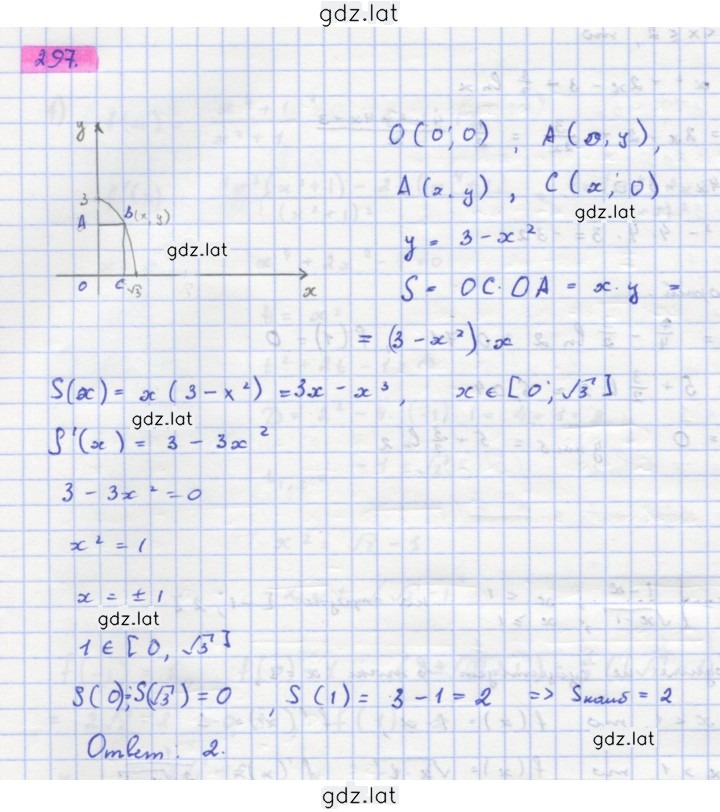 gdz.lat
297.
y
3
A
B(x, y)
gdz.lat
0
C
√3
x
O(0; 0), A(0, y),
A(x, y), C(x; 0)
gdz.lat
y = 3 - x²
S = OC · OA = x · y =
= (3 - x²) · x
S(x) = x(3 - x²) = 3x - x³, x ∈ [0; √3]
gdz.lat
S'(x) = 3 - 3x²
3 - 3x² = 0
x² = 1
x = ± 1
gdz.lat
1 ∈ [0, √3]
S(0); S(√3) = 0, S(1) = 3 - 1 = 2 => Sнаиб = 2
gdz.lat
Ответ: 2.
gdz.lat